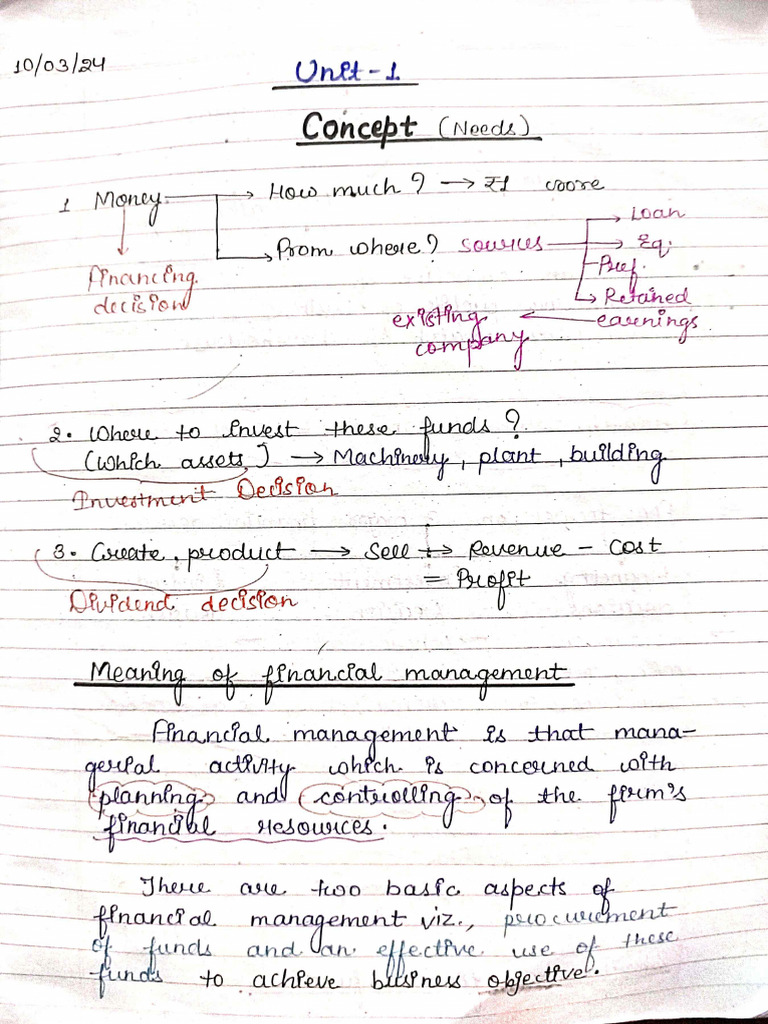 10/03/24
Unit-1
Concept (Needs)
1 Money → How much? → ₹1 crore
Loan
From where? sources → Eq.
Pref.
Financing decision
Retained earnings
existing company
2. Where to invest these funds?
(which assets) → Machinery, plant, building
Investment Decision
3. Create product → Sell → Revenue - Cost
= Profit
Dividend decision
Meaning of financial management
Financial management is that mana-
gerial activity which is concerned with
planning and controlling of the firm's
financial resources.
There are two basic aspects of
financial management viz., procurement
of funds and an effective use of these
funds to achieve business objective.